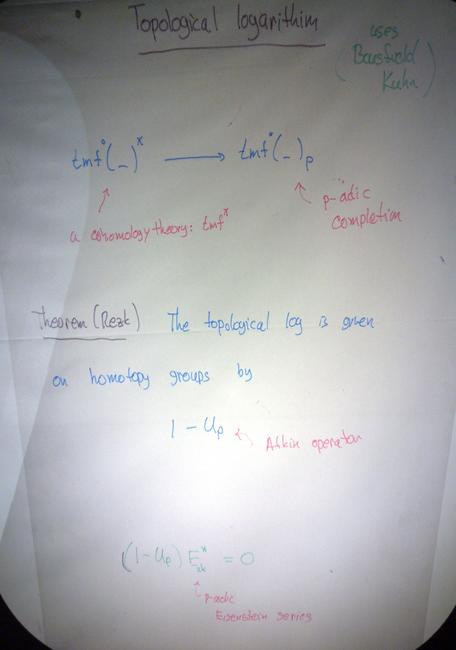 Topological logarithim
(uses
Bousfield
Kuhn)
tmf⁰(_)ˣ ⟶ tmf⁰(_)ₚ
a cohomology theory: tmfˣ
p-adic
completion
Theorem (Rezk) The topological log is given
on homotopy groups by
1 - Uₚ
Atkin operator
(1-Uₚ) E*₂ₖ = 0
p-adic
Eisenstein series